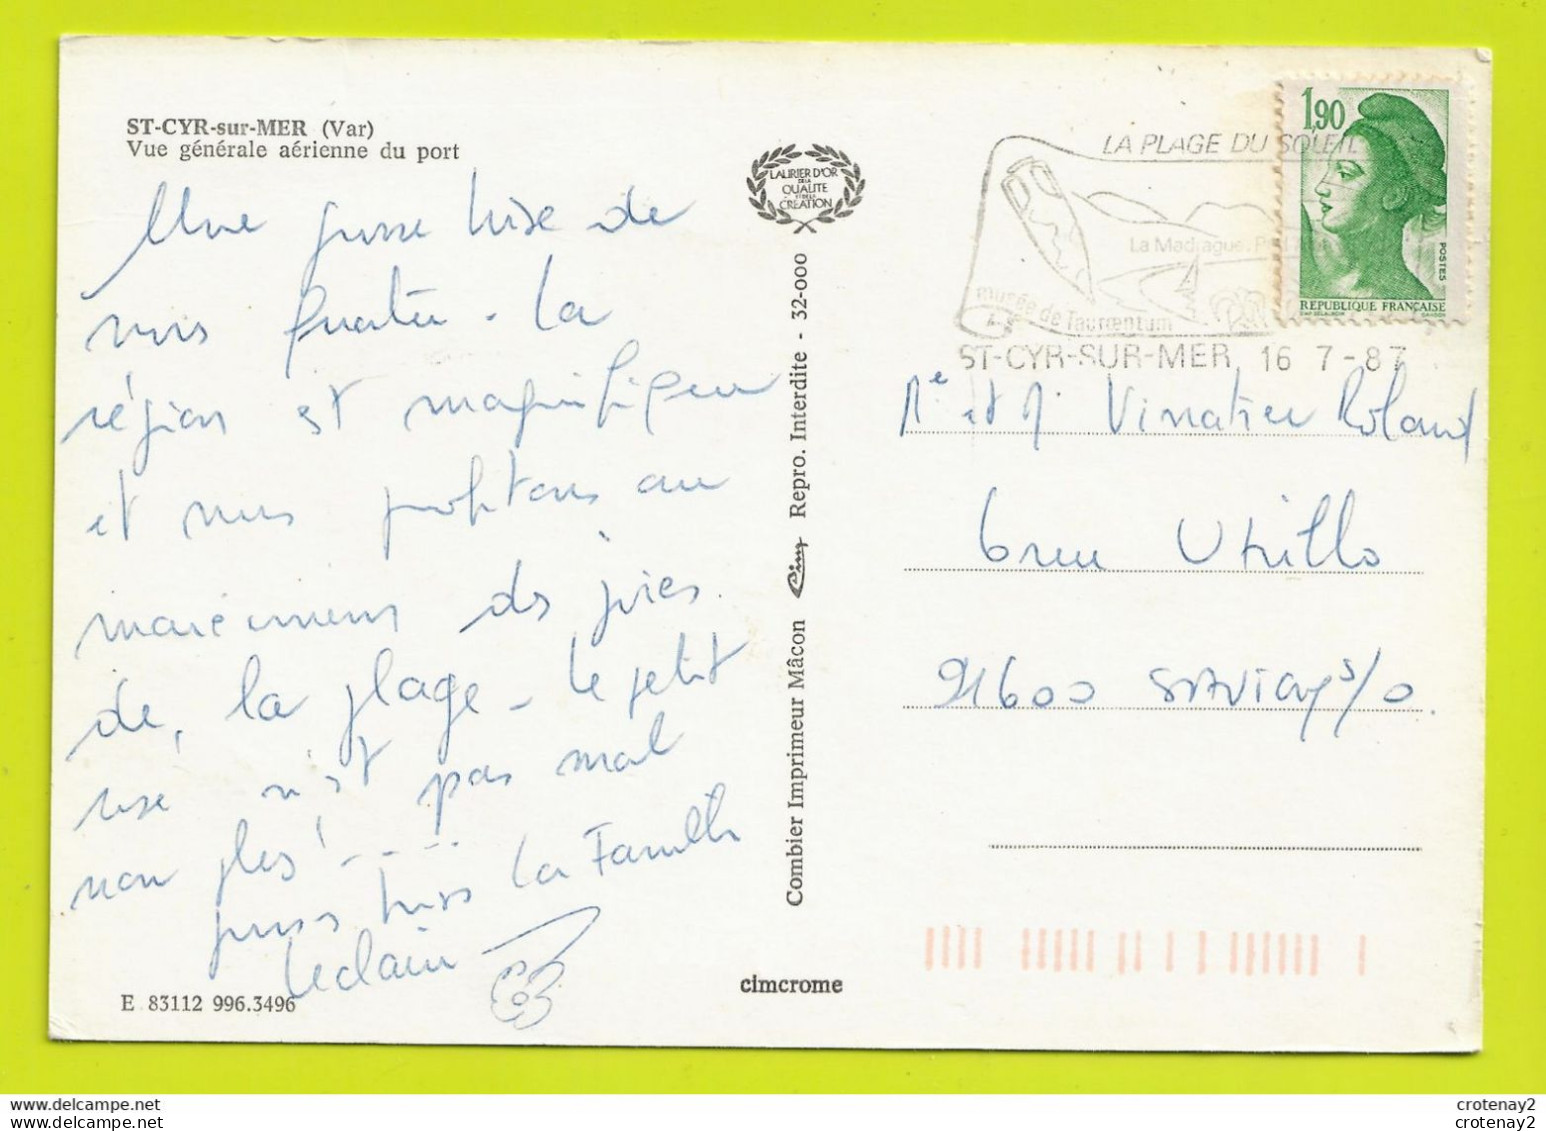 ST-CYR-sur-MER (Var)
Vue générale aérienne du port
Une grosse bise de
nous quatre - La
région est magnifique
et nous profitons au
maximum des joies
de la plage - le petit
rosé n'est pas mal
non plus! ----
gross biss La Famille
Leclair
E 83112 996.3496
LAURIER D'OR
DE LA
QUALITE
ET DE LA
CREATION
Combier Imprimeur Mâcon Cim Repro. Interdite - 32-000
cimcrome
LA PLAGE DU SOLEIL
La Madrague, Port
musée de Tauroentum
ST-CYR-SUR-MER 16 7-87
1,90
POSTES
REPUBLIQUE FRANÇAISE
Me et M Vinatier Roland
6 rue Utrillo
91600 SAVIGNY s/o.
crotenay2
crotenay2